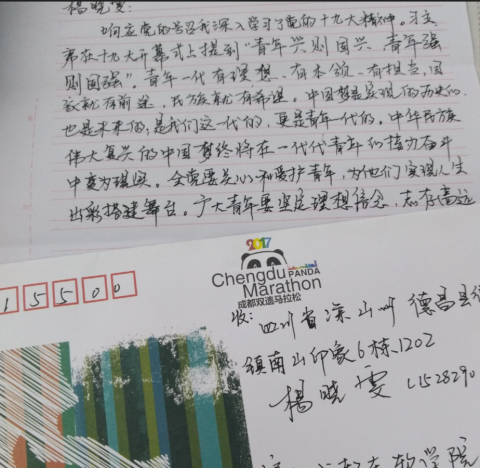 杨晓雯:
响应党的号召我深入学习了党的十九大精神。习主
席在十九大开幕式上提到“青年兴则国兴 青年强
则国强”。青年一代有理想、有本领、有担当,国
家就有前途,民族就有希望。中国梦是历史的,
也是未来的;是我们这一代的,更是青年一代的。中华民族
伟大复兴的中国梦终将在一代代青年的接力奋斗
中变为现实。全党要关心和爱护青年,为他们实现人生
出彩搭建舞台。广大青年要坚定理想信念,志存高远
2017
Chengdu PANDA
Marathon
成都双遗马拉松
15500
收: 四川省凉山州德昌县
镇南山印象6栋1202
杨晓雯 1528290
学院